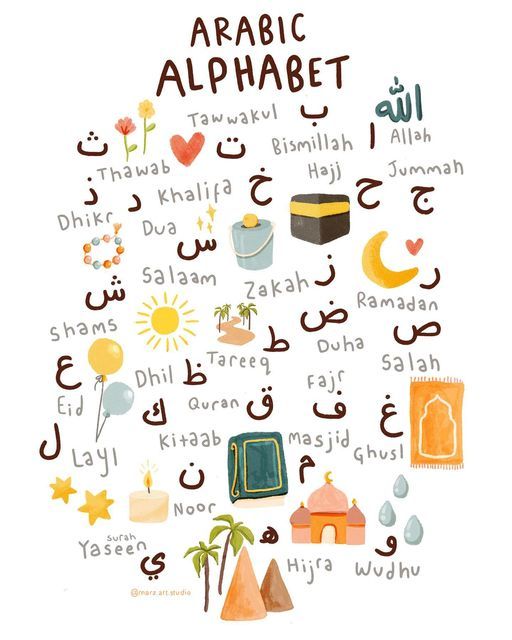 ARABIC
ALPHABET
الله
ا
Allah
ب
Bismillah
ت
Tawwakul
ث
Thawab
ج
Jummah
ح
Hajj
خ
Khalifa
د
Dua
ذ
Dhikr
ر
Ramadan
ز
Zakah
س
Salaam
ش
Shams
ص
Salah
ض
Duha
ط
Tareeq
ظ
Dhil
ع
Eid
غ
Ghusl
ف
Fajr
ق
Quran
ك
Kitaab
ل
Layl
م
Masjid
ن
Noor
ه
Hijra
و
Wudhu
ي
surah
Yaseen
@marz.art.studio